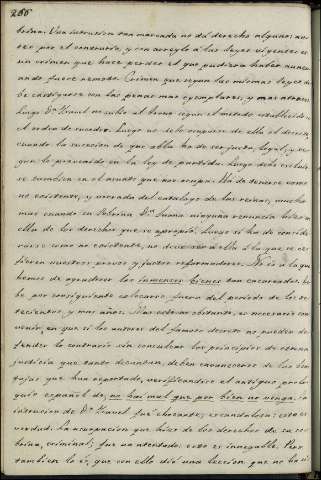 266
bolina. Una intrusion tan marcada no dá derecho alguno: an-
tes por el contrario, y con arreglo á las leyes vigentes es
un crimen que hace perder el que pudiera haber aun cu-
ando fuese remoto. Crimen que segun las mismas leyes de-
be castigarse con las penas mas ejemplares, y mas atroces.
Luego Dª Ysavel no subió al trono segun el metodo establecido
el orden de suceder. Luego no debe ocuparse de ella el derecho
cuando la sucesion de que ella ha de ser justa, legal, y se-
gun lo prevenido en la ley de partida. Luego debe escluir-
se tambien en el asunto que nos ocupa. Ha de tenerse como
no existente, y borrada del catalogo de las reinas, mucho
mas cuando su Sobrina Dª Juana ninguna renuncia hizo en
ella de los derechos que se apropió. Luego si ha de conside-
rarse como no existente, no debe ser de ella á la que se re-
fieren nuestros provos y justos reformadores. No es á la que
hemos de agradecer los inmensos bienes tan encareados. De-
be por consiguiente colocarse fuera del periodo de los se-
tecientos, y mas años. Mas esto no obstante, es necesario con-
venir, en que si los autores del famoso decreto no pueden de-
fender lo contrario sin conculcar los principios de eterna
justicia que tanto decantan, deben envanecerse de las ven-
tajas que han reportado, verificandose el antiguo prolo-
quio español de, no hai mal que por bien no venga. La
intrusion de Dª Ysavel fué chocante; escandalosa: esto es
verdad. La ocupacion que hizo de los derechos de su so-
brina, criminal; fue un atentado: esto es innegable. Pero
tambien lo es, que con ello dió una leccion que no ha si-